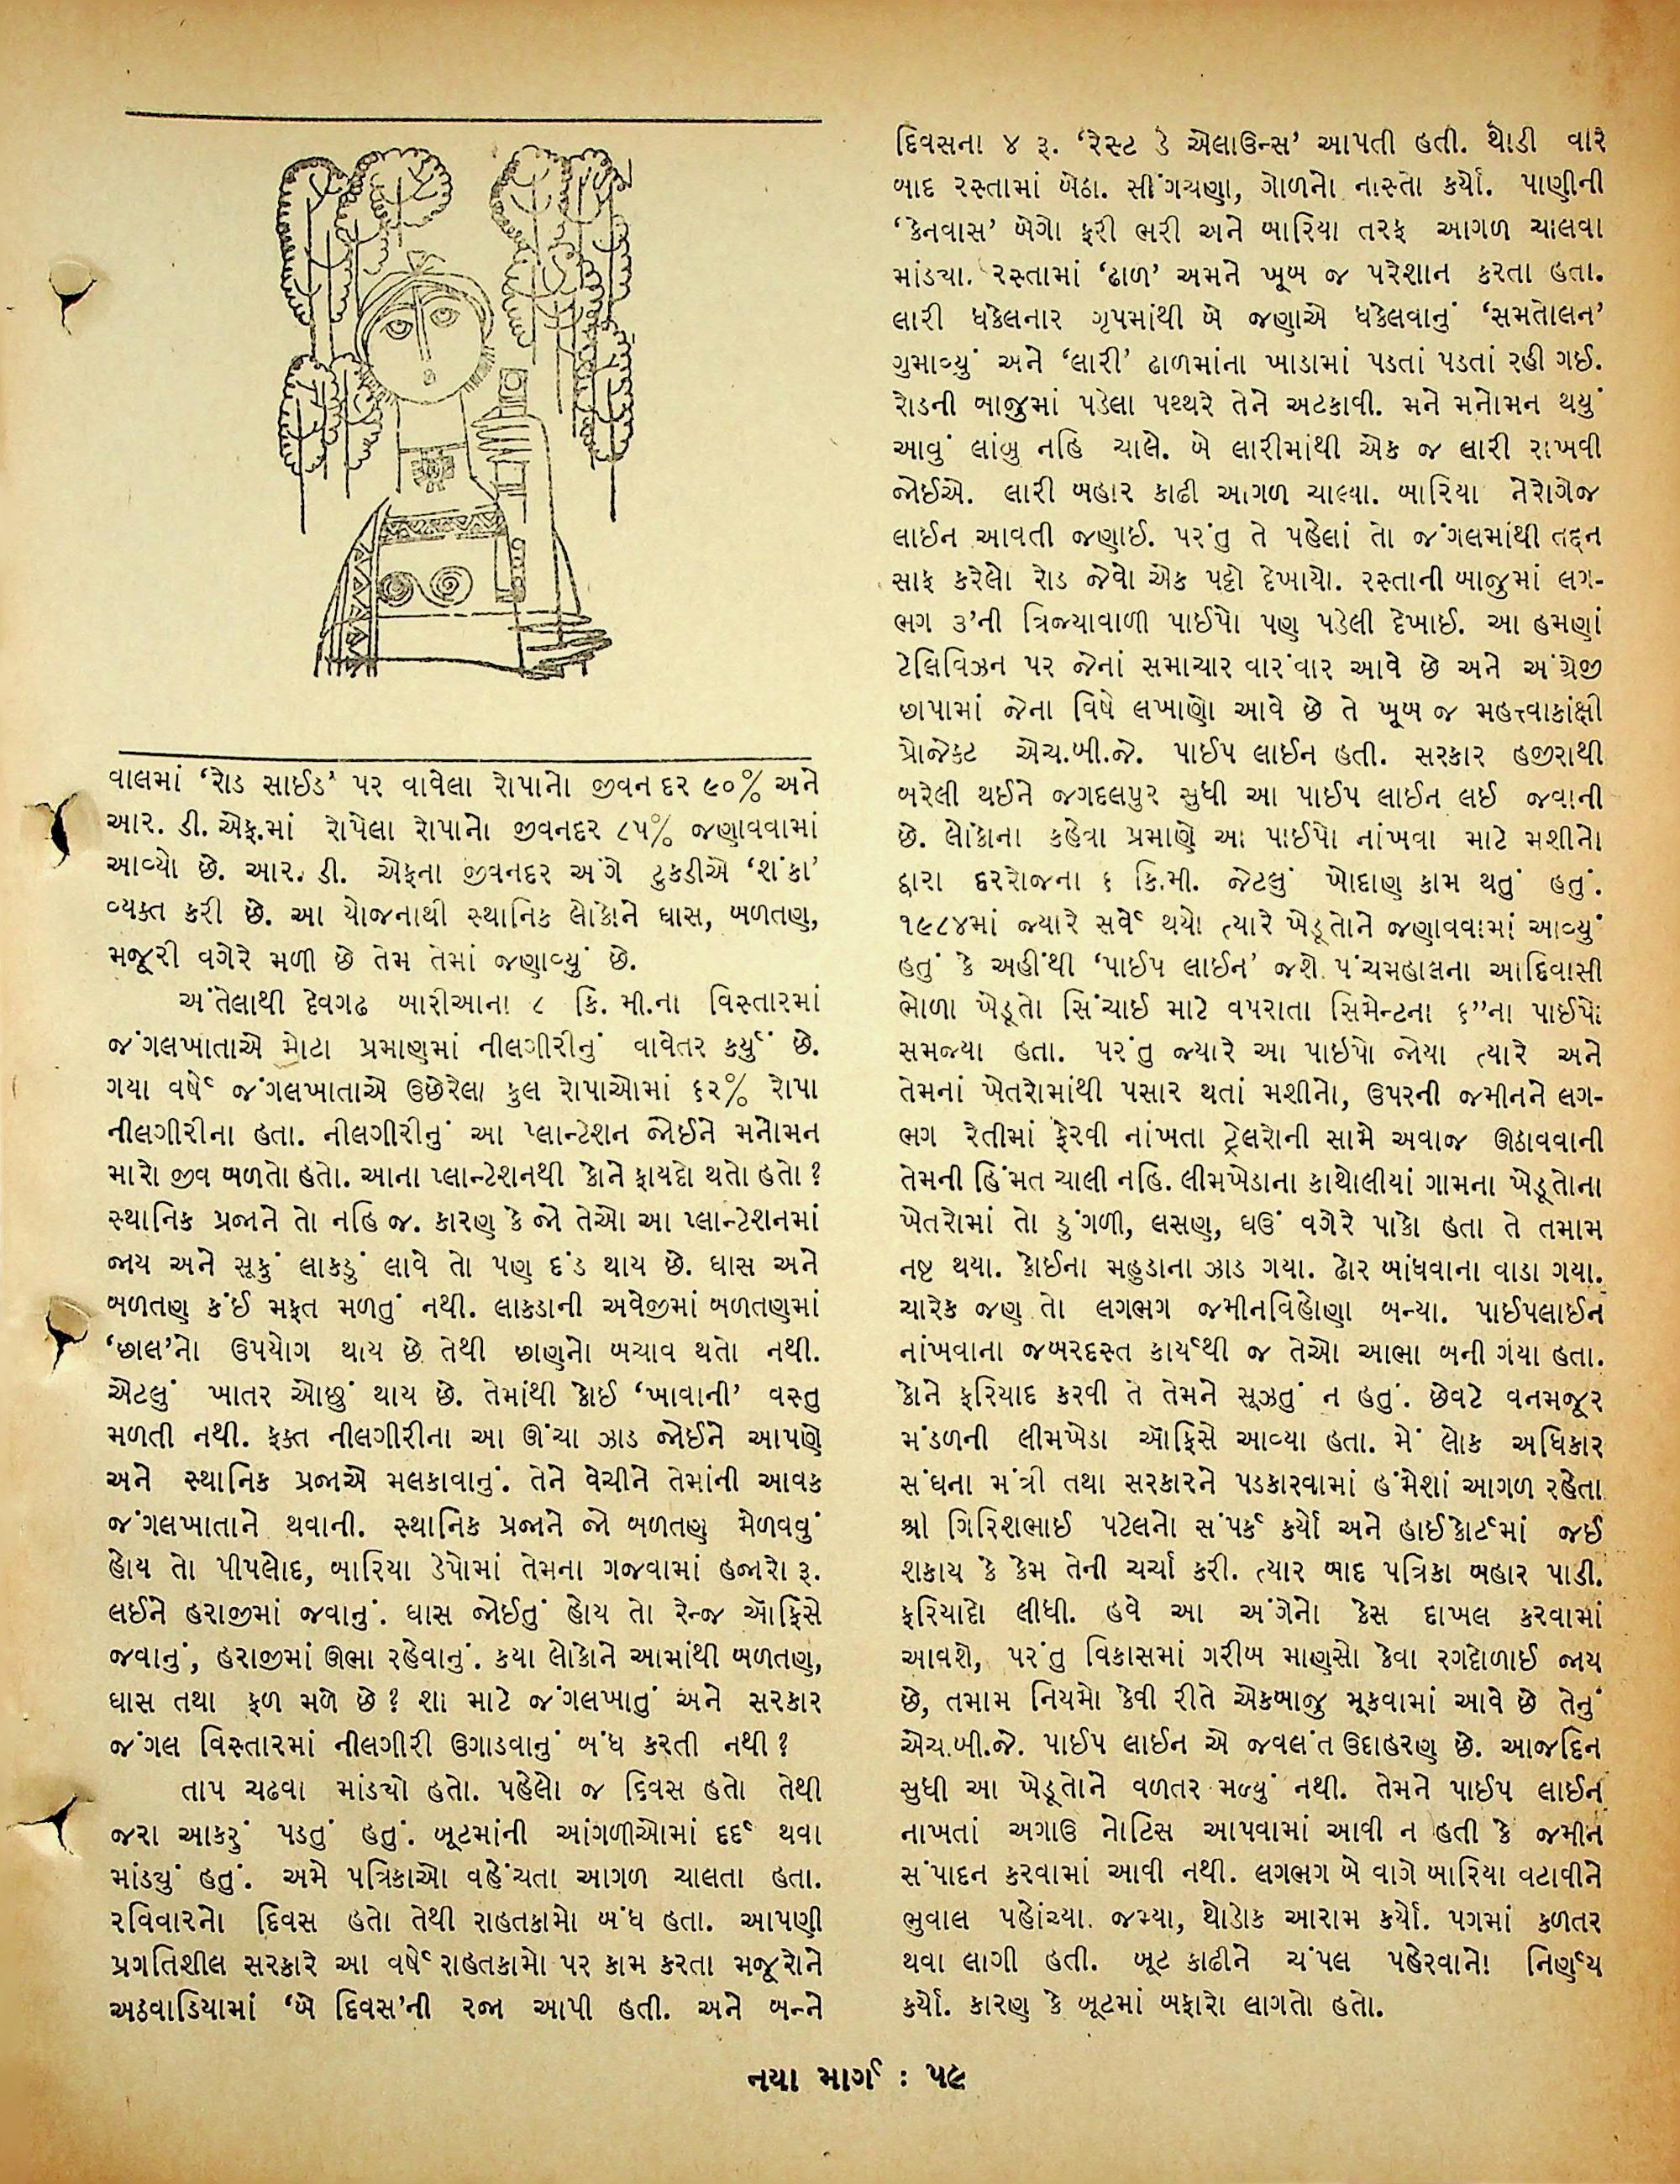 વાલમાં ‘રોડ સાઈડ’ પર વાવેલા રોપાનો જીવન દર ૯૦% અને
આર. ડી. એફ.માં રોપેલા રોપાનો જીવનદર ૮૫% જણાવવામાં
આવ્યો છે. આર. ડી. એફના જીવનદર અંગે ટુકડીએ ‘શંકા’
વ્યક્ત કરી છે. આ યોજનાથી સ્થાનિક લોકોને ઘાસ, બળતણ,
મજૂરી વગેરે મળી છે તેમ તેમાં જણાવ્યું છે.
અંતેલાથી દેવગઢ બારીઆના ૮ કિ. મી.ના વિસ્તારમાં
જંગલખાતાએ મોટા પ્રમાણમાં નીલગીરીનું વાવેતર કર્યું છે.
ગયા વર્ષે જંગલખાતાએ ઉછેરેલા કુલ રોપાઓમાં ૬૨% રોપા
નીલગીરીના હતા. નીલગીરીનું આ પ્લાન્ટેશન જોઈને મનોમન
મારો જીવ બળતો હતો. આના પ્લાન્ટેશનથી કોને ફાયદો થતો હતો ?
સ્થાનિક પ્રજાને તો નહિ જ. કારણ કે જો તેઓ આ પ્લાન્ટેશનમાં
જાય અને સૂકું લાકડું લાવે તો પણ દંડ થાય છે. ઘાસ અને
બળતણ કંઈ મફત મળતું નથી. લાકડાની અવેજીમાં બળતણમાં
‘છાલ’નો ઉપયોગ થાય છે તેથી છાણનો બચાવ થતો નથી.
એટલું ખાતર ઓછું થાય છે. તેમાંથી કોઈ ‘ખાવાની’ વસ્તુ
મળતી નથી. ફક્ત નીલગીરીના આ ઊંચા ઝાડ જોઈને આપણે
અને સ્થાનિક પ્રજાએ મલકાવાનું. તેને વેચીને તેમાંની આવક
જંગલખાતાને થવાની. સ્થાનિક પ્રજાને જો બળતણ મેળવવું
હોય તો પીપલોદ, બારિયા ડેપોમાં તેમના ગજવામાં હજારો રૂ.
લઈને હરાજીમાં જવાનું. ઘાસ જોઈતું હોય તો રેન્જ ઑફિસે
જવાનું, હરાજીમાં ઊભા રહેવાનું. કયા લોકોને આમાંથી બળતણ,
ઘાસ તથા ફળ મળે છે ? શા માટે જંગલખાતું અને સરકાર
જંગલ વિસ્તારમાં નીલગીરી ઉગાડવાનું બંધ કરતી નથી ?
તાપ ચઢવા માંડ્યો હતો. પહેલો જ દિવસ હતો તેથી
જરા આકરું પડતું હતું. બૂટમાંની આંગળીઓમાં દર્દ થવા
માંડ્યું હતું. અમે પત્રિકાઓ વહેંચતા આગળ ચાલતા હતા.
રવિવારનો દિવસ હતો તેથી રાહતકામો બંધ હતા. આપણી
પ્રગતિશીલ સરકારે આ વર્ષે રાહતકામો પર કામ કરતા મજૂરોને
અઠવાડિયામાં ‘બે દિવસ’ની રજા આપી હતી. અને બન્ને
દિવસના ૪ રૂ. ‘રેસ્ટ ડે એલાઉન્સ’ આપતી હતી. થોડી વારે
બાદ રસ્તામાં બેઠા. સીંગચણા, ગોળનો નાસ્તો કર્યો. પાણીની
‘કેનવાસ’ બેગો ફરી ભરી અને બારિયા તરફ આગળ ચાલવા
માંડ્યા. રસ્તામાં ‘ઢાળ’ અમને ખૂબ જ પરેશાન કરતા હતા.
લારી ધકેલનાર ગૃપમાંથી બે જણાએ ધકેલવાનું ‘સમતોલન’
ગુમાવ્યું અને ‘લારી’ ઢાળમાંના ખાડામાં પડતાં પડતાં રહી ગઈ.
રોડની બાજુમાં પડેલા પથ્થરે તેને અટકાવી. મને મનોમન થયું
આવું લાંબુ નહિ ચાલે. બે લારીમાંથી એક જ લારી રાખવી
જોઈએ. લારી બહાર કાઢી આગળ ચાલ્યા. બારિયા નેરોગેજ
લાઈન આવતી જણાઈ. પરંતુ તે પહેલાં તો જંગલમાંથી તદ્દન
સાફ કરેલો રોડ જેવો એક પટ્ટો દેખાયો. રસ્તાની બાજુમાં લગ-
ભગ ૩’ની ત્રિજ્યાવાળી પાઈપો પણ પડેલી દેખાઈ. આ હમણાં
ટેલિવિઝન પર જેનાં સમાચાર વારંવાર આવે છે અને અંગ્રેજી
છાપામાં જેના વિષે લખાણો આવે છે તે ખૂબ જ મહત્ત્વાકાંક્ષી
પ્રોજેક્ટ એચ.બી.જે. પાઈપ લાઈન હતી. સરકાર હજીરાથી
બરેલી થઈને જગદલપુર સુધી આ પાઈપ લાઈન લઈ જવાની
છે. લોકોના કહેવા પ્રમાણે આ પાઈપો નાંખવા માટે મશીનો
દ્વારા દરરોજના ૬ કિ.મી. જેટલું ખોદાણ કામ થતું હતું.
૧૯૮૪માં જ્યારે સર્વે થયો ત્યારે ખેડૂતોને જણાવવામાં આવ્યું
હતું કે અહીંથી ‘પાઈપ લાઈન’ જશે. પંચમહાલના આદિવાસી
ભોળા ખેડૂતો સિંચાઈ માટે વપરાતા સિમેન્ટના ૬”ના પાઈપો
સમજ્યા હતા. પરંતુ જ્યારે આ પાઈપો જોયા ત્યારે અને
તેમનાં ખેતરોમાંથી પસાર થતાં મશીનો, ઉપરની જમીનને લગ-
ભગ રેતીમાં ફેરવી નાંખતા ટ્રેલરોની સામે અવાજ ઊઠાવવાની
તેમની હિંમત ચાલી નહિ. લીમખેડાના કાથોલીયાં ગામના ખેડૂતોના
ખેતરોમાં તો ડુંગળી, લસણ, ઘઉં વગેરે પાકો હતા તે તમામ
નષ્ટ થયા. કોઈના મહુડાના ઝાડ ગયા. ઢોર બાંધવાના વાડા ગયા.
ચારેક જણ તો લગભગ જમીનવિહોણા બન્યા. પાઈપલાઈન
નાંખવાના જબરદસ્ત કાર્યથી જ તેઓ આભા બની ગયા હતા.
કોને ફરિયાદ કરવી તે તેમને સૂઝતું ન હતું. છેવટે વનમજૂર
મંડળની લીમખેડા ઑફિસે આવ્યા હતા. મેં લોક અધિકાર
સંઘના મંત્રી તથા સરકારને પડકારવામાં હંમેશાં આગળ રહેતા
શ્રી ગિરિશભાઈ પટેલનો સંપર્ક કર્યો અને હાઈકોર્ટમાં જઈ
શકાય કે કેમ તેની ચર્ચા કરી. ત્યાર બાદ પત્રિકા બહાર પાડી.
ફરિયાદો લીધી. હવે આ અંગેનો કેસ દાખલ કરવામાં
આવશે, પરંતુ વિકાસમાં ગરીબ માણસો કેવા રગદોળાઈ જાય
છે, તમામ નિયમો કેવી રીતે એકબાજુ મૂકવામાં આવે છે તેનું
એચ.બી.જે. પાઈપ લાઈન એ જવલંત ઉદાહરણ છે. આજદિન
સુધી આ ખેડૂતોને વળતર મળ્યું નથી. તેમને પાઈપ લાઈન
નાખતાં અગાઉ નોટિસ આપવામાં આવી ન હતી કે જમીન
સંપાદન કરવામાં આવી નથી. લગભગ બે વાગે બારિયા વટાવીને
ભુવાલ પહોંચ્યા. જમ્યા, થોડોક આરામ કર્યો. પગમાં કળતર
થવા લાગી હતી. બૂટ કાઢીને ચંપલ પહેરવાનો નિર્ણય
કર્યો. કારણ કે બૂટમાં બફારો લાગતો હતો.
નયા માર્ગ : ૫૯